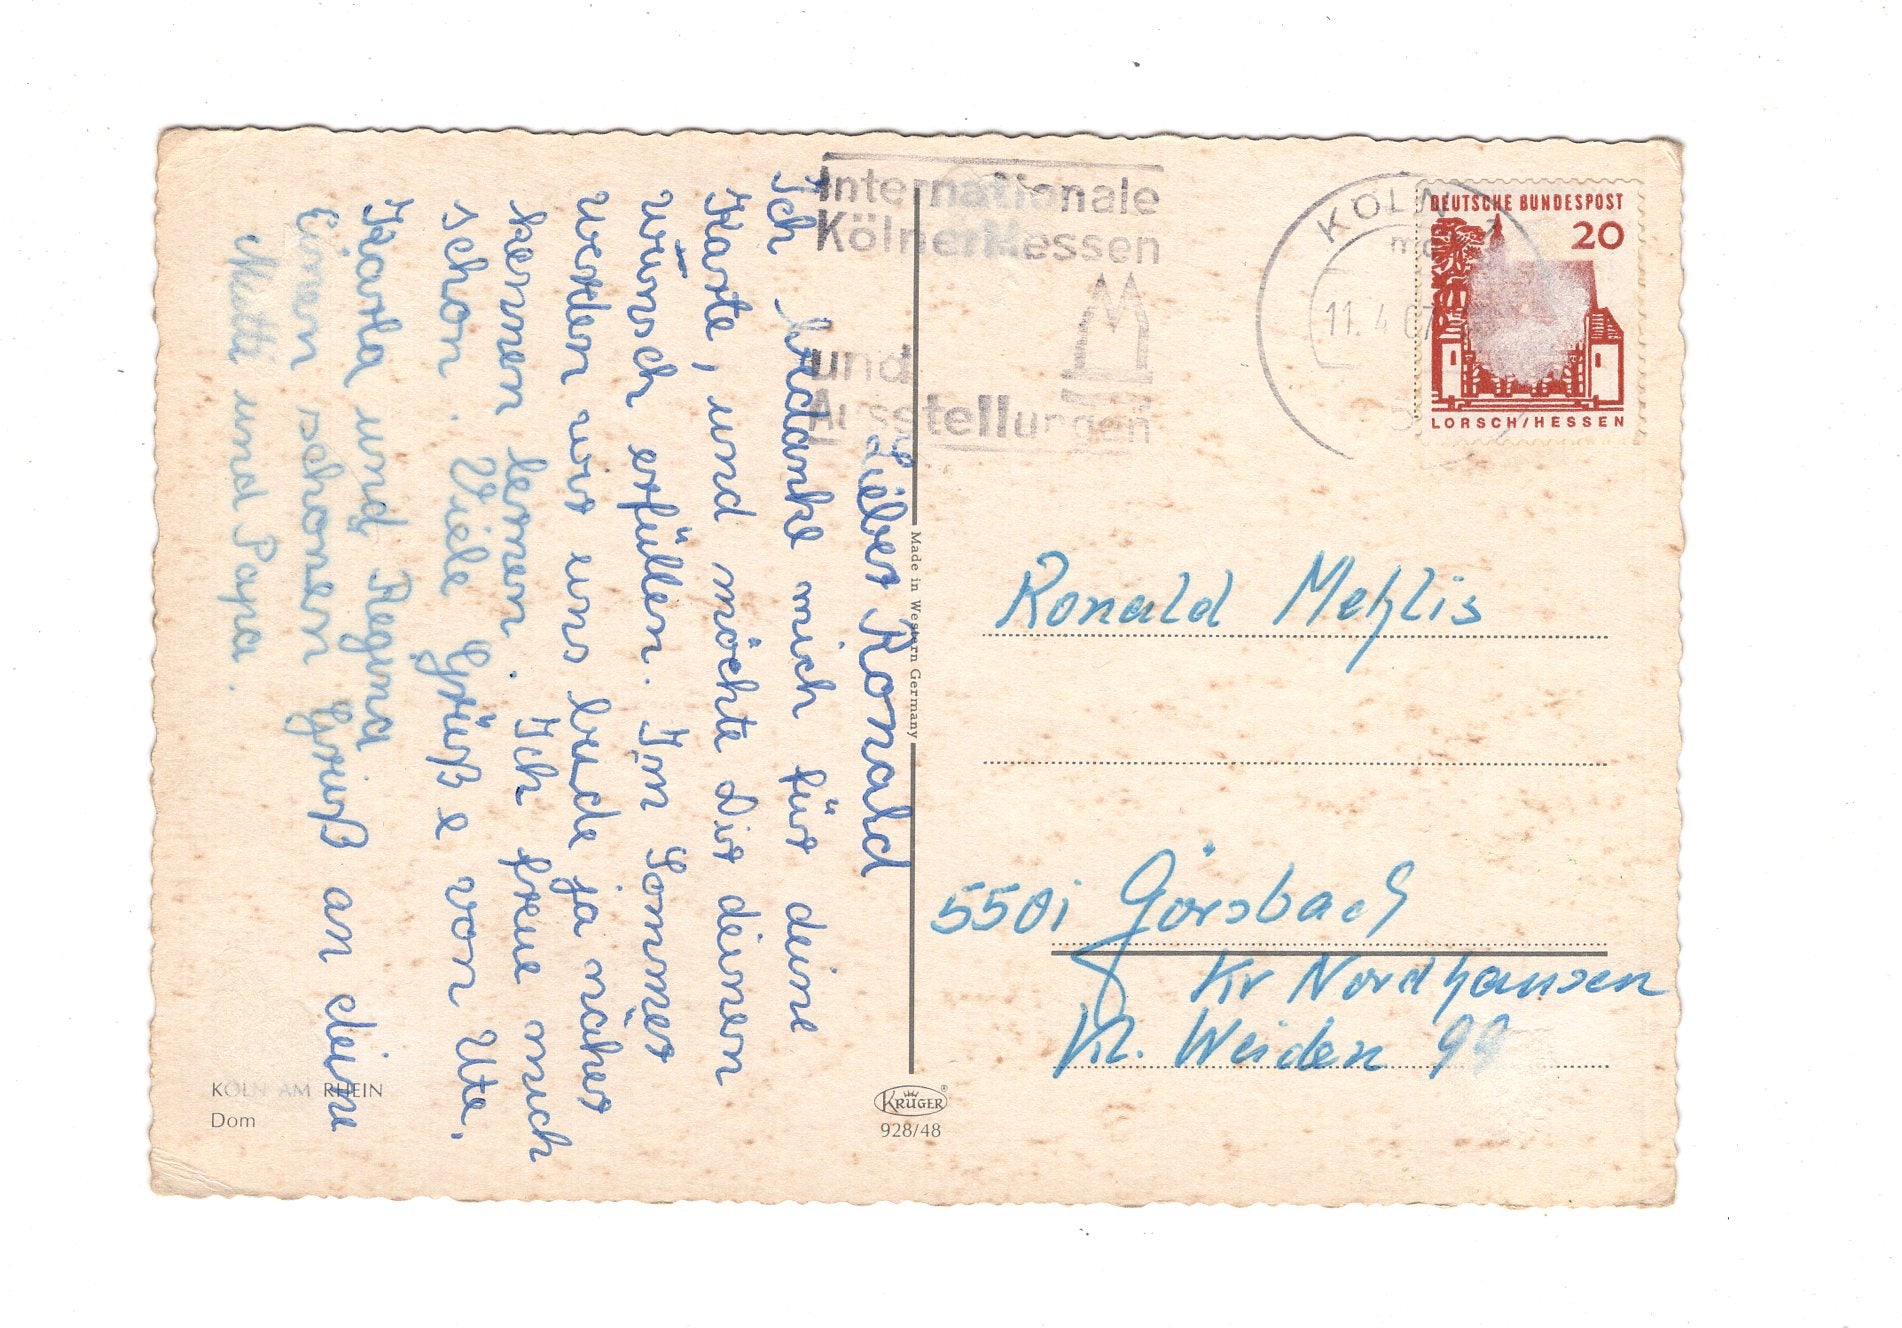 Internationale
Kölner Messen
und
Ausstellungen
KÖLN
11.4.67
DEUTSCHE BUNDESPOST
20
LORSCH/HESSEN
Lieber Ronald
Ich bedanke mich für deine
Karte, und möchte Dir deinen
Wünsch erfüllen. Im Sommer
werden wir uns beide ja näher
kennen lernen. Ich freue mich
schon. Viele Grüße von Ute.
Karla und Regina
Einen schönen Grüß an deine
Mutti und Papa.
Made in Western Germany
Ronald Mehlis
5501 Görsbach
Kr Nordhausen
Kl. Weiden 99
KÖLN AM RHEIN
Dom
KRÜGER
928/48